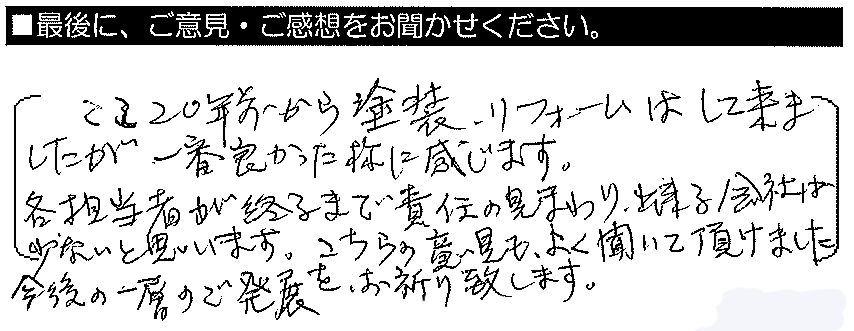 ■最後に、ご意見・ご感想をお聞かせください。
ここ20年前から塗装、リフォームはして来ま
したが一番良かった様に感じます。
各担当者が終るまで責任の見まわり、出来る会社は
少ないと思います。こちらの意見も、よく聞いて頂けました
今後の一層のご発展を、お祈り致します。